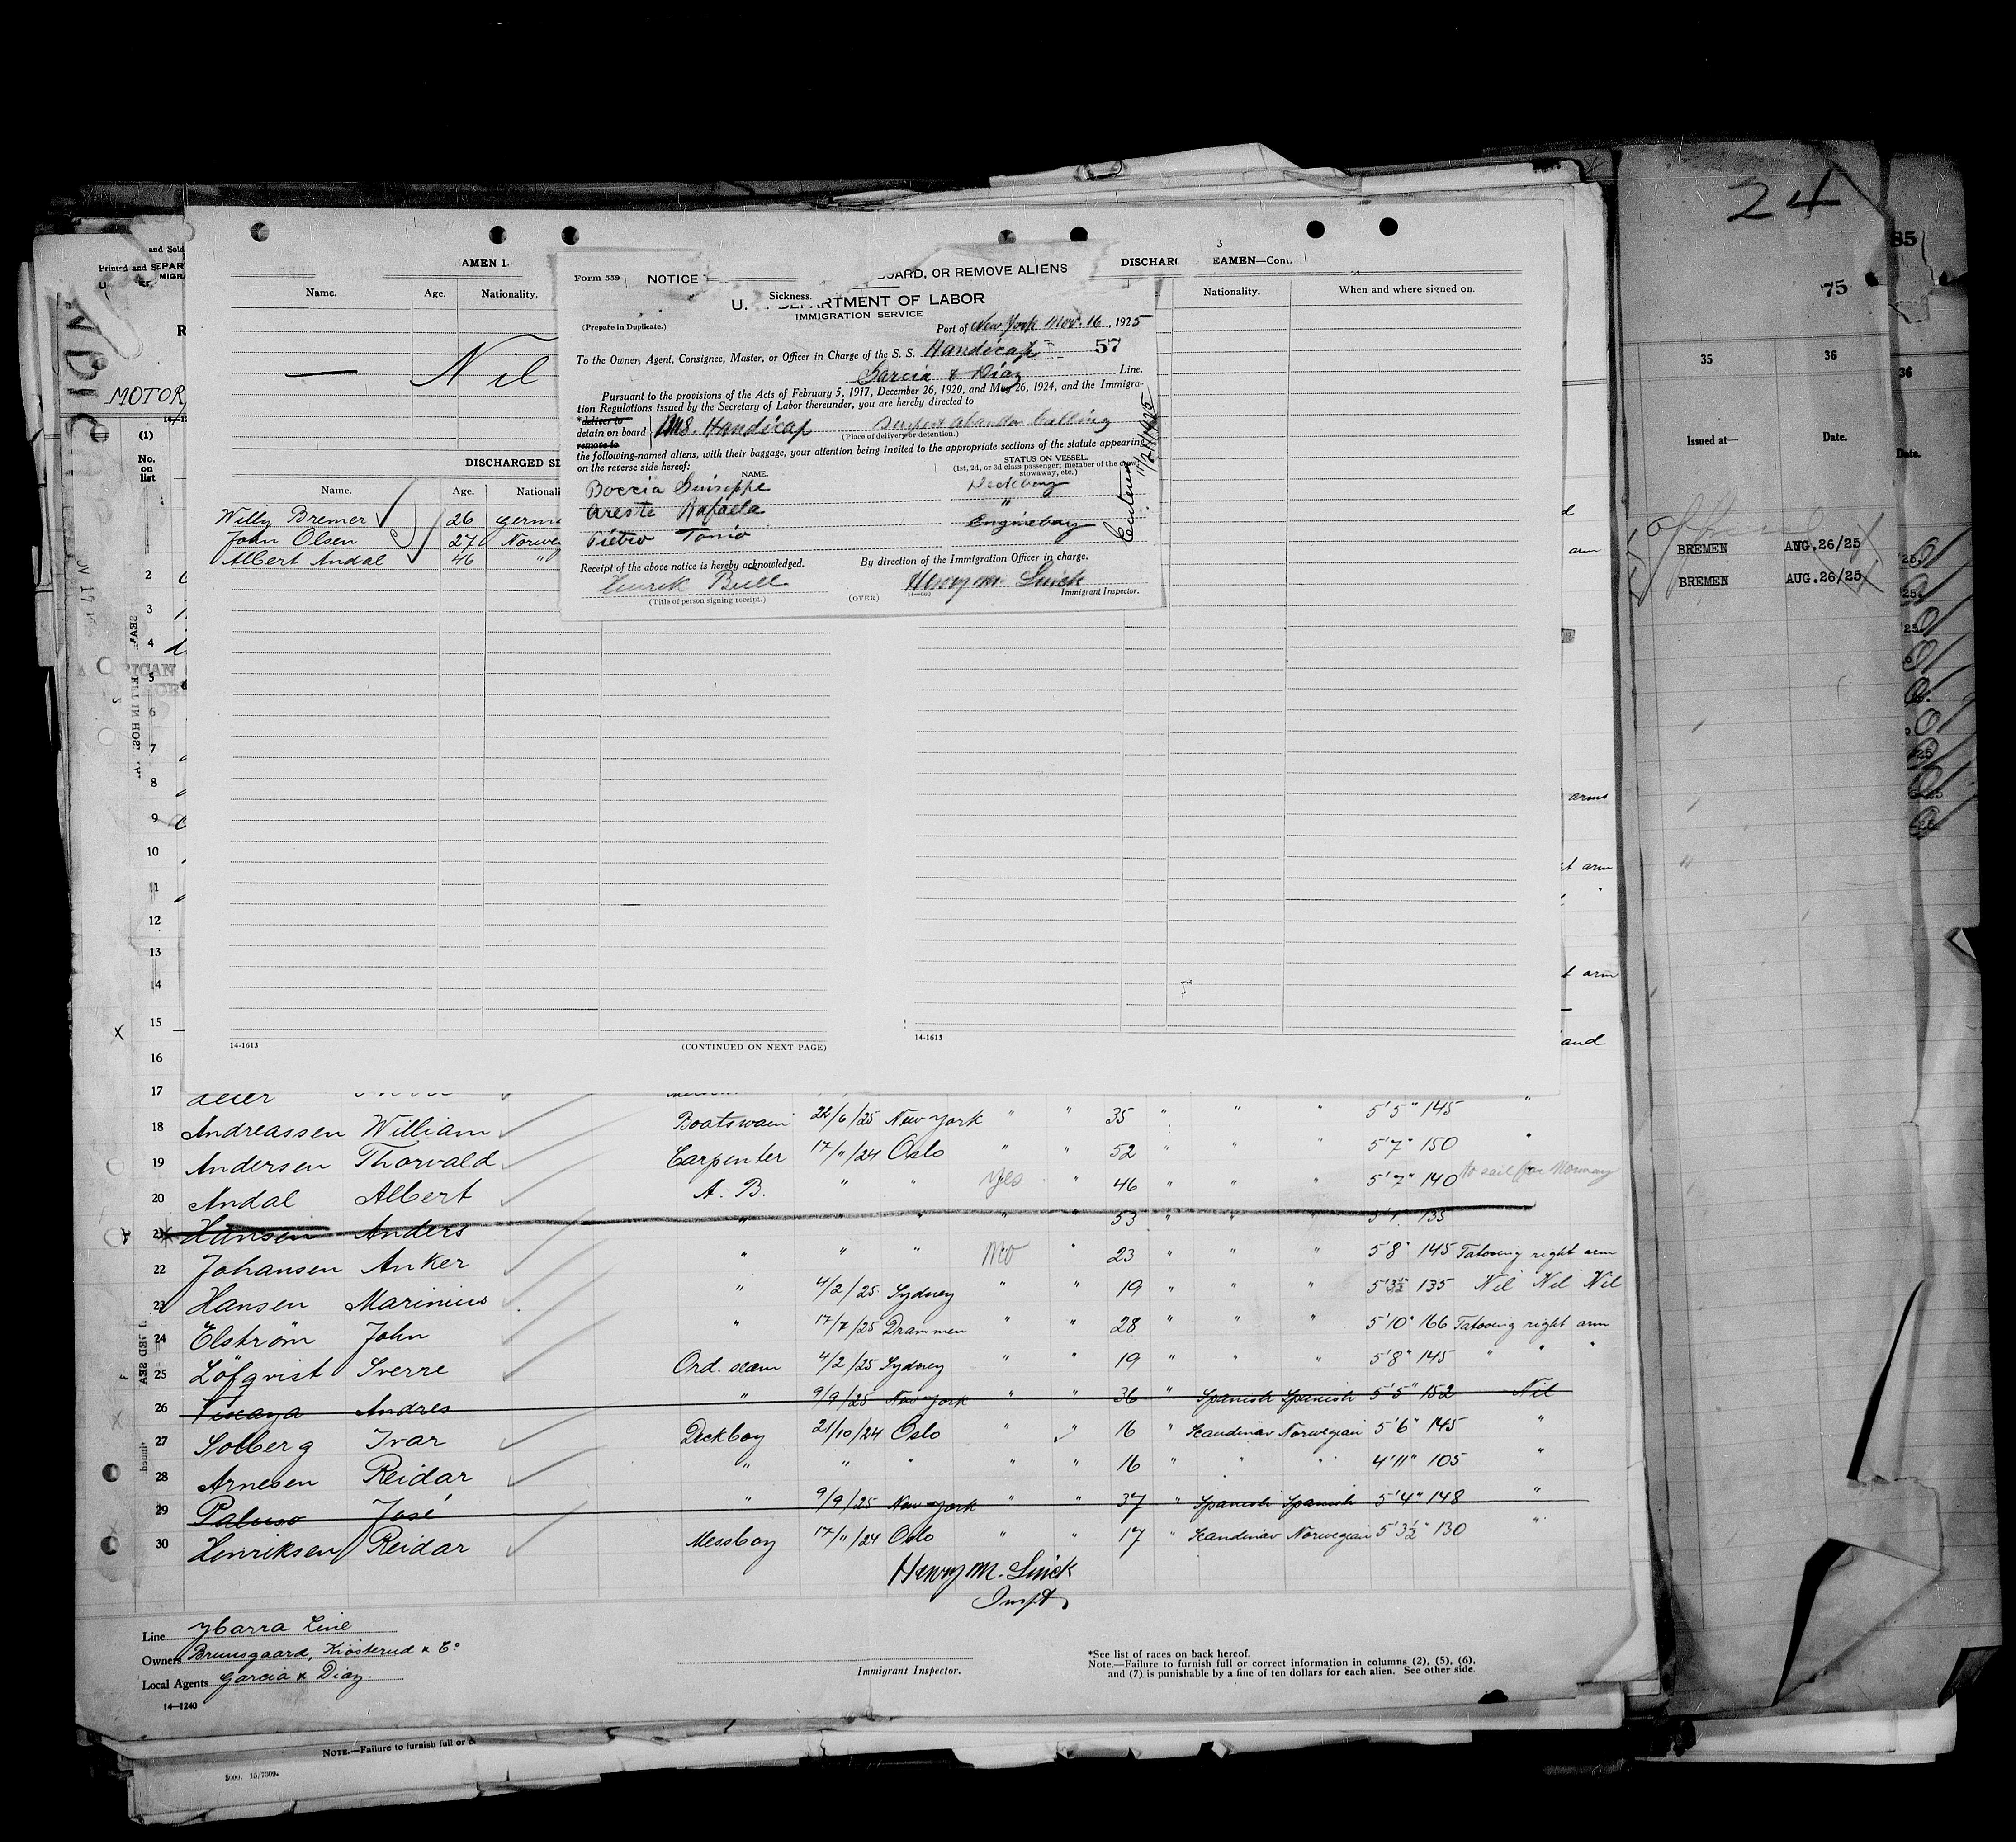 24
85
75
35
36
36
Issued at—
Date.
Date.
BREMEN AUG.26/25
BREMEN AUG.26/25
and Sold
Printed and S
MOTOR
(1)
No.
on
list
3
AMEN L
DISCHARG EAMEN—Cont.
Name. Age. Nationality.
Nationality. When and where signed on.
— Nil
DISCHARGED SE
Name. Age. Nationali
Willy Bremer 26 Germa
John Olsen 27 Norweg
Albert Andal 46 "
Form 559 NOTICE OARD, OR REMOVE ALIENS
Sickness.
U. DEPARTMENT OF LABOR
IMMIGRATION SERVICE
(Prepare in Duplicate.)
Port of New York Nov. 16, 1925
To the Owner, Agent, Consignee, Master, or Officer in Charge of the S. S. Handicap 57
Garcia & Diaz Line.
Pursuant to the provisions of the Acts of February 5, 1917, December 26, 1920, and May 26, 1924, and the Immigra-
tion Regulations issued by the Secretary of Labor thereunder, you are hereby directed to
*deliver to
detain on board M.S. Handicap
remove to
(Place of delivery or detention.)
the following-named aliens, with their baggage, your attention being invited to the appropriate sections of the statute appearing
on the reverse side hereof:
STATUS ON VESSEL
(1st, 2d, or 3d class passenger; member of the crew,
stowaway, etc.)
NAME.
Boccia Guiseppe Deckboy
Areste Rafaela "
Pietro Tonio Engineboy
Receipt of the above notice is hereby acknowledged. By direction of the Immigration Officer in charge.
Henrik Bull Henry M. Linck
(Title of person signing receipt.) (OVER) 14—609 Immigrant Inspector.
2
3
4
5
6
7
8
9
10
11
12
13
14
15
16
17
arm
arms
arm
arm
and
14-1613 (CONTINUED ON NEXT PAGE) 14-1613
18 Andreassen William Boatswain 22/6/25 New York " " 35 " " " 5'5" 145 "
19 Andersen Thorvald Carpenter 17/11/24 Oslo " " 52 " " " 5'7" 150 "
20 Andal Albert A. B. " " yes " 46 " " " 5'7" 140 to sail for Norway
21 Hansen Anders " " " " " 53 " " " 5'1" 135
22 Johansen Anker " " " No " 23 " " " 5'8" 145 Tatooing right arm
23 Hansen Marinius " 4/2/25 Sydney " " 19 " " " 5'3½ 135 Nil Nil Nil
24 Elström John " 17/7/25 Drammen " " 28 " " " 5'10" 166 Tatooing right arm
25 Löfqvist Sverre Ord. seam 4/2/25 Sydney " " 19 " " " 5'8" 145 " " "
26 Viscaya Andres " 9/9/25 New York " " 36 " Spanish Spanish 5'5" 152 Nil
27 Solberg Ivar Deckboy 21/10/24 Oslo " 16 " Scandinav Norwegian 5'6" 145 "
28 Arnesen Reidar " " " " " 16 " " " 4'11" 105 "
29 Paluso José " 9/9/25 New York " " 37 " Spanish Spanish 5'4" 148 "
30 Henriksen Reidar Messboy 17/11/24 Oslo " " 17 " Scandinav Norwegian 5'3½" 130 "
Henry M. Linck
Inspt
Line Ybarra Line
Owners Bruusgaard, Kiösterud & Co
Local Agents Garcia & Diaz.
14—1240
Immigrant Inspector.
*See list of races on back hereof.
Note.—Failure to furnish full or correct information in columns (2), (5), (6),
and (7) is punishable by a fine of ten dollars for each alien. See other side.
NOTE.—Failure to furnish full or c